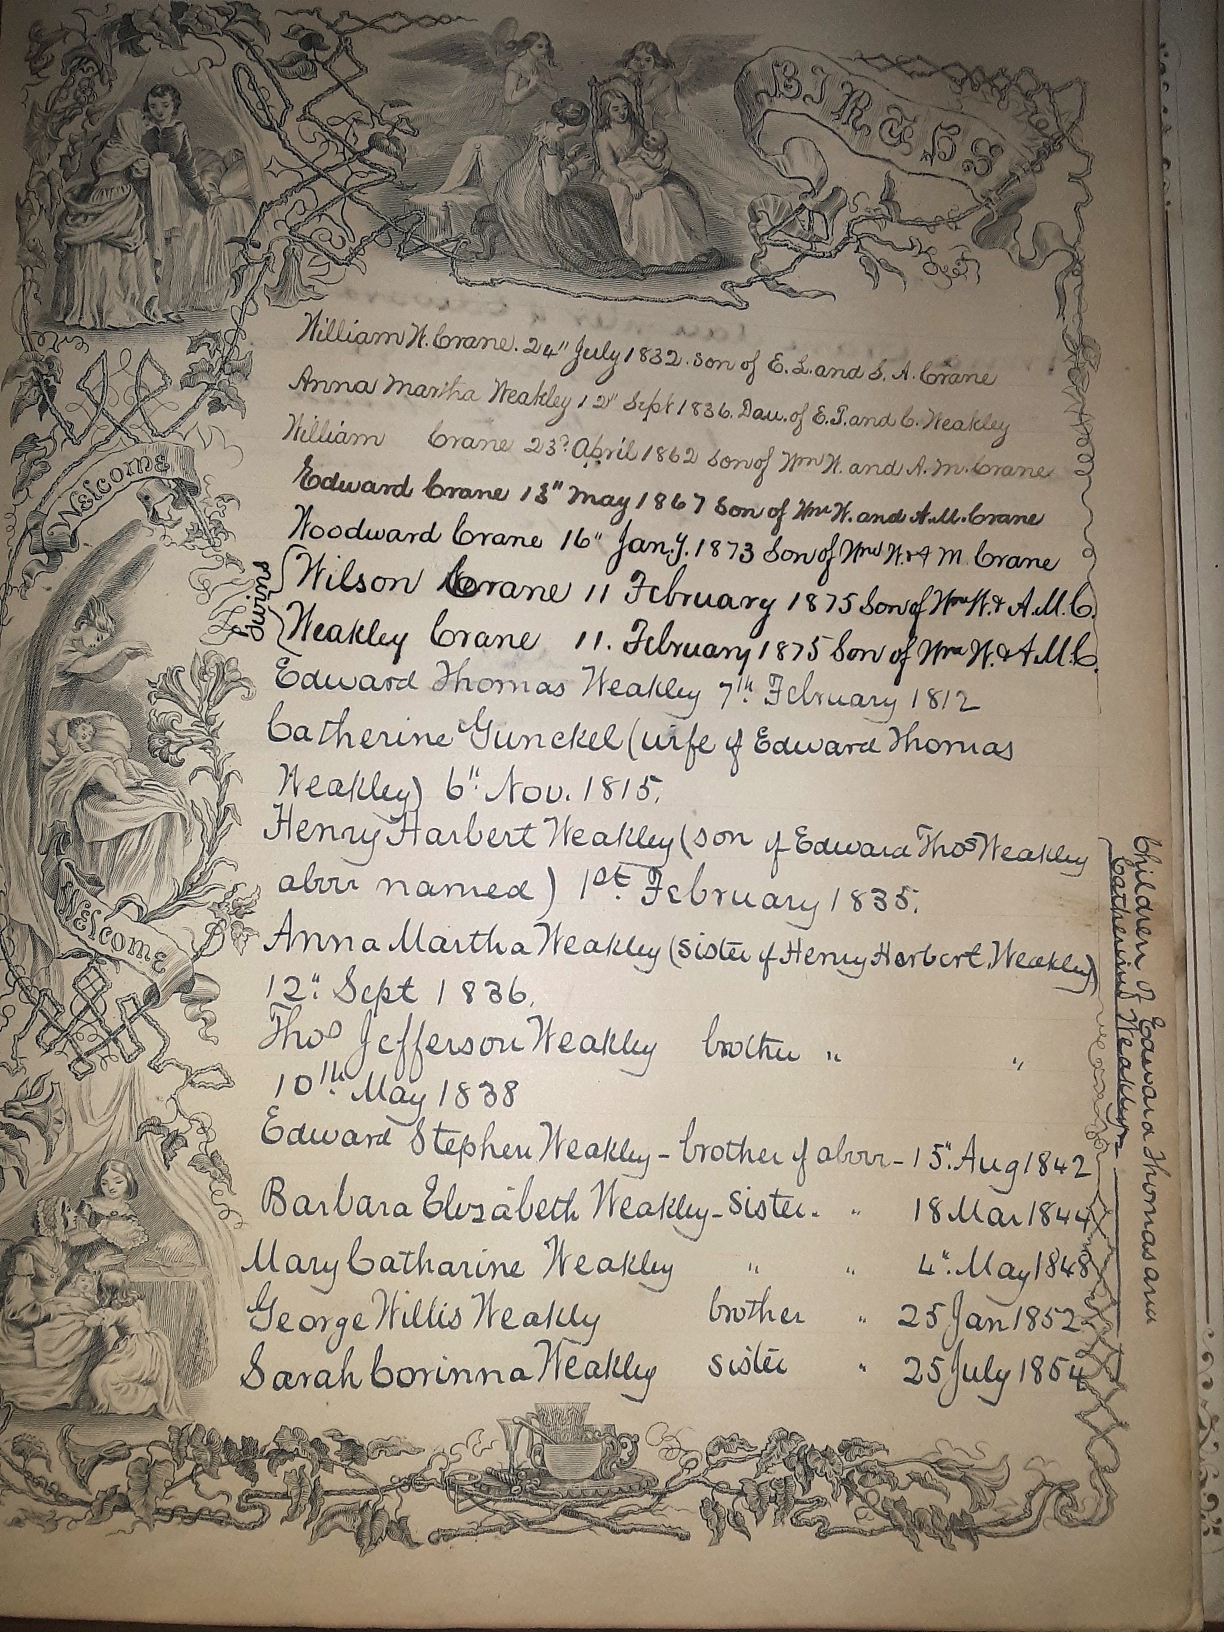 BIRTHS
William W. Crane. 24" July 1832. son of E. L. and S. A. Crane
Anna Martha Weakley 12" Sept 1836. Dau. of E. T. and C. Weakley
William Crane 23d April 1862 Son of Wm W. and A. M. Crane
Welcome
Edward Crane 13" May 1867 Son of Wm W. and A. M. Crane
Woodward Crane 16" Jan.y. 1873 Son of Wm W. & A M. Crane
Twins
Wilson Crane 11 February 1875 Son of Wm W. & A. M. C.
Weakley Crane 11. February 1875 Son of Wm W. & A M. C.
Edward Thomas Weakley 7th. February 1812
Catherine Gunckel (wife of Edward Thomas
Weakley) 6" Nov. 1815.
Henry Harbert Weakley (son of Edward Thos Weakley
above named) 1st. February 1835.
Welcome
Anna Martha Weakley (sister of Henry Harbert Weakley)
12" Sept 1836.
Thos Jefferson Weakley brother " "
10th May 1838
Edward Stephen Weakley - brother of above - 15" Aug 1842
Barbara Elizabeth Weakley - sister. " 18 Mar 1844
Mary Catharine Weakley " " 4" May 1848
George Willis Weakley brother " 25 Jan 1852
Sarah Corinna Weakley sister " 25 July 1854
Children of Edward Thomas and
Catherine Weakley